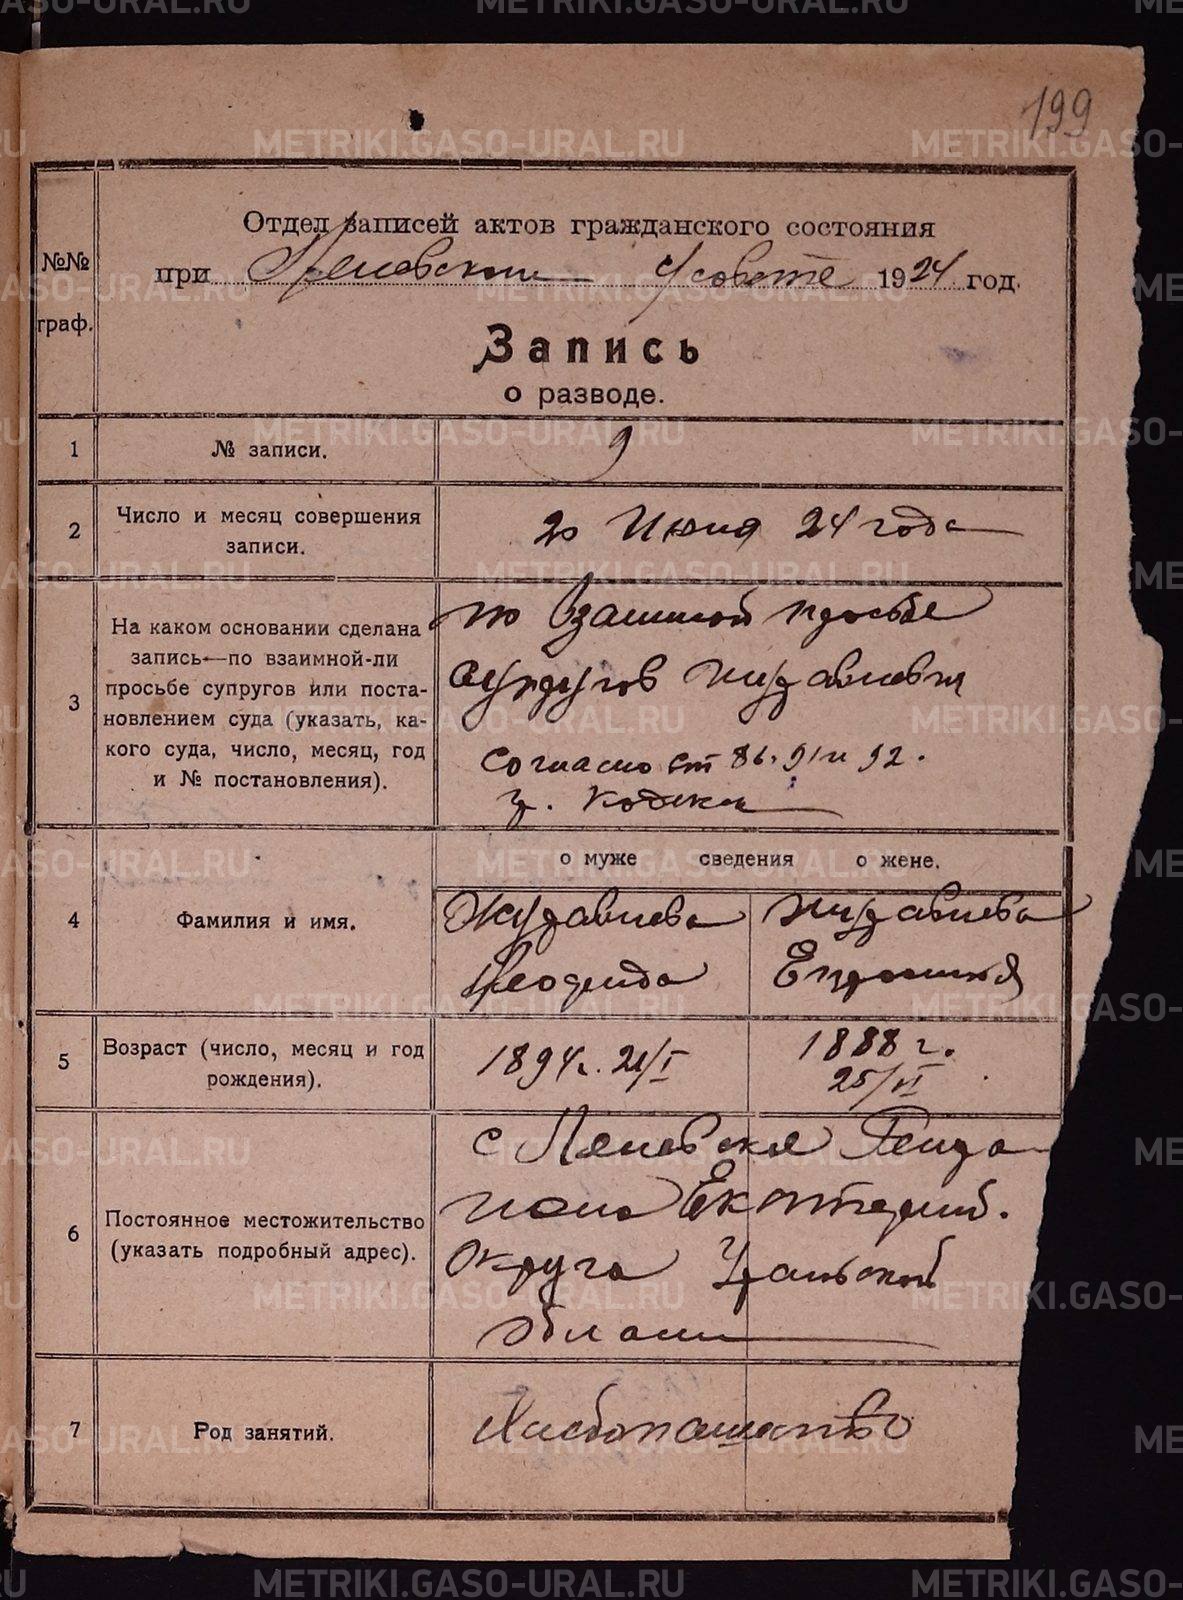 199
Отдел записей актов гражданского состояния
при Усовете 1924 год.
№№ граф.
Запись
о разводе.
1 № записи. 9
2 Число и месяц совершения
записи.
20 Июня 24 года
3 На каком основании сделана
запись—по взаимной-ли
просьбе супругов или поста-
новлением суда (указать, ка-
кого суда, число, месяц, год
и № постановления).
по Взаимной просьбе
супругов Журавлевы
согласно ст 86. 91 и 92.
гр. Кодекса
о муже сведения о жене.
4 Фамилия и имя.
Журавлева Журавлева
5 Возраст (число, месяц и год
рождения).
1894 г. 21/I 1888 г.
25/VI
6 Постоянное местожительство
(указать подробный адрес).
с
Екатерин.
Округа Уральской
области
7 Род занятий. Хлебопашество
METRIKI.GASO-URAL.RU